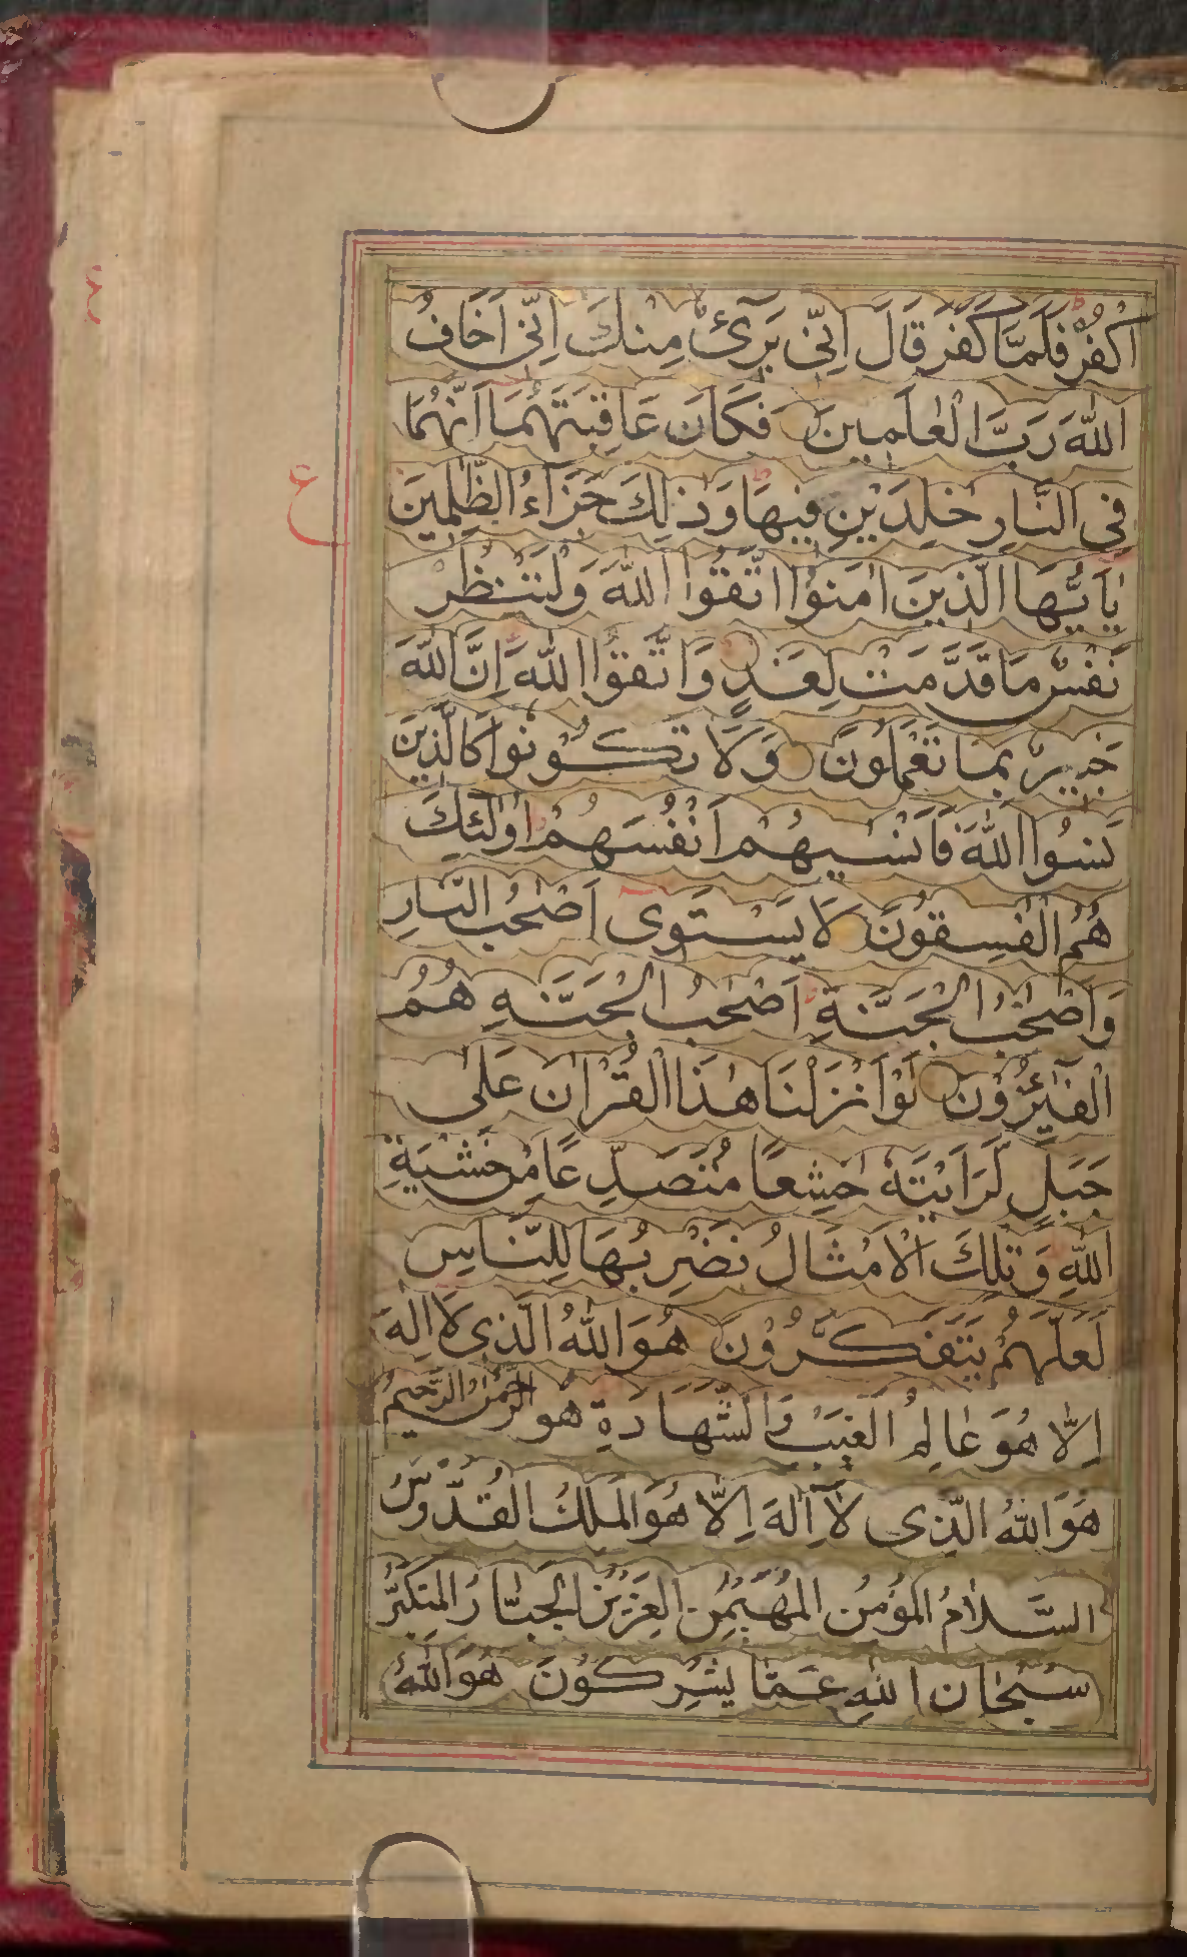 اكْفُرْ فَلَمَّا كَفَرَ قَالَ اِنِّى بَرِىْٓءٌ مِنْكَ اِنِّى اَخَافُ
اللّٰهَ رَبَّ الْعٰلَمِينَ فَكَانَ عَاقِبَتَهُمَا اَنَّهُمَا
فِى النَّارِ خٰلِدَيْنِ فِيهَا وَذٰلِكَ جَزَاءُ الظّٰلِمِينَ
يٰاَيُّهَا الَّذِينَ اٰمَنُوا اتَّقُوا اللّٰهَ وَلْتَنْظُرْ
نَفْسٌ مَا قَدَّمَتْ لِغَدٍ وَاتَّقُوا اللّٰهَ اِنَّ اللّٰهَ
خَبِيرٌ بِمَا تَعْمَلُونَ وَلَا تَكُونُوا كَالَّذِينَ
نَسُوا اللّٰهَ فَاَنْسٰيهُمْ اَنْفُسَهُمْ اُولٰٓئِكَ
هُمُ الْفٰسِقُونَ لَا يَسْتَوِى اَصْحٰبُ النَّارِ
وَاَصْحٰبُ الْجَنَّةِ اَصْحٰبُ الْجَنَّةِ هُمُ
الْفَآئِزُوْنَ لَوْ اَنْزَلْنَا هٰذَا الْقُرْاٰنَ عَلٰى
جَبَلٍ لَّرَاَيْتَهٗ خٰشِعًا مُتَصَدِّعًا مِنْ خَشْيَةِ
اللّٰهِ وَتِلْكَ الْاَمْثَالُ نَضْرِبُهَا لِلنَّاسِ
لَعَلَّهُمْ يَتَفَكَّرُوْنَ هُوَ اللّٰهُ الَّذِى لَا اِلٰهَ
اِلَّا هُوَ عَالِمُ الْغَيْبِ وَالشَّهَادَةِ هُوَ الرَّحْمٰنُ الرَّحِيْمُ
هُوَ اللّٰهُ الَّذِى لَآ اِلٰهَ اِلَّا هُوَ الْمَلِكُ الْقُدُّوْسُ
السَّلَامُ الْمُؤْمِنُ الْمُهَيْمِنُ الْعَزِيْزُ الْجَبَّارُ الْمُتَكَبِّرُ
سُبْحَانَ اللّٰهِ عَمَّا يُشْرِكُوْنَ هُوَ اللّٰهُ
ع